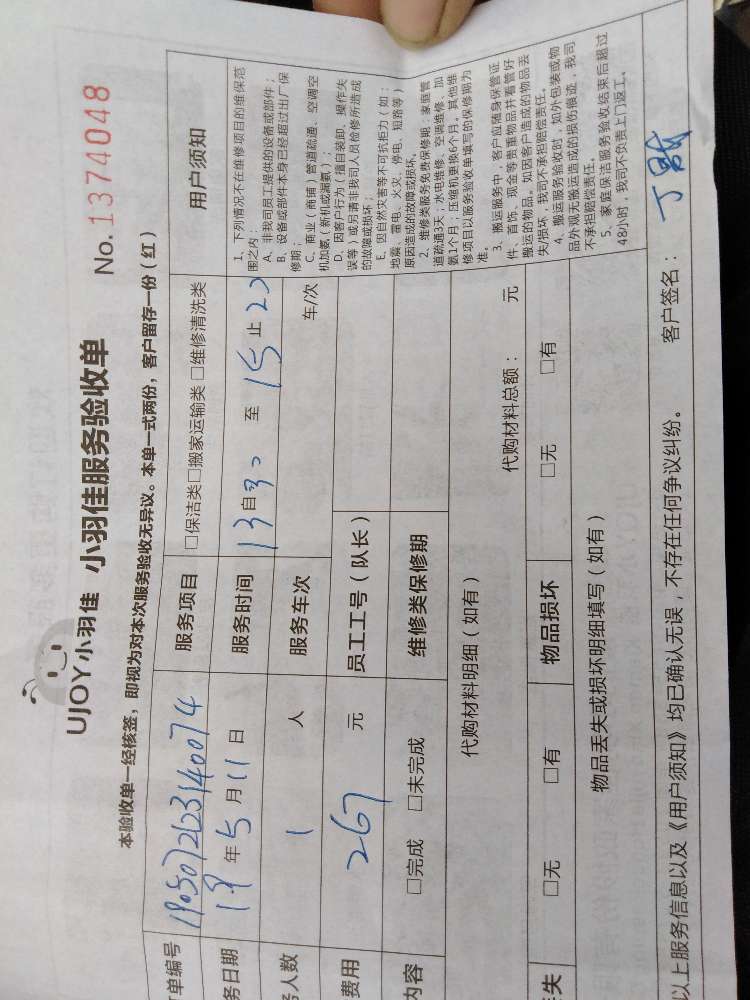 UJOY小羽佳 小羽佳服务验收单 No.1374048
本验收单一经核签，即视为对本次服务验收无异议。本单一式两份，客户留存一份（红）
单编号 服务项目 □保洁类□搬家运输类 □维修清洗类 用户须知
务日期 19年5月11日 服务时间 13自30至15止20
务人数 1人 服务车次 车/次
费用 267元 员工工号（队长）
内容 □完成 □未完成 维修类保修期
1、下列情况不在维修项目的维保范
围之内：
A、非我司员工提供的设备或部件；
B、设备或部件本身已经超过出厂保
修期；
C、商业（商铺）管道疏通、空调空
机加氨（新机或漏氨）；
D、因客户行为（擅自装卸、操作失
误等）或另请非我司人员检修所造成
的故障或损坏；
E、因自然灾害等不可抗拒力（如：
地震、雷电、火灾、停电、短路等）
原因造成的故障或损坏。
2、维修类服务免费保修期：家庭管
道疏通3天；水电维修、空调维修、加
氨1个月；压缩机更换6个月。其他维
修项目以服务验收单填写的保修期为
准。
3、搬运服务中，客户应随身保管证
件、首饰、现金等贵重物品并看管好
搬运的物品。如因客户造成的物品丢
失/损坏，我司不承担赔偿责任。
4、搬运服务验收时，如外包装或物
品外观无搬运造成的损伤痕迹，我司
不承担赔偿责任。
5、家庭保洁服务验收结束后超过
48小时，我司不负责上门返工。
代购材料明细（如有） 代购材料总额： 元
失 □无 □有 物品损坏 □无 □有
物品丢失或损坏明细填写（如有）
以上服务信息以及《用户须知》均已确认无误，不存在任何争议纠纷。 客户签名：